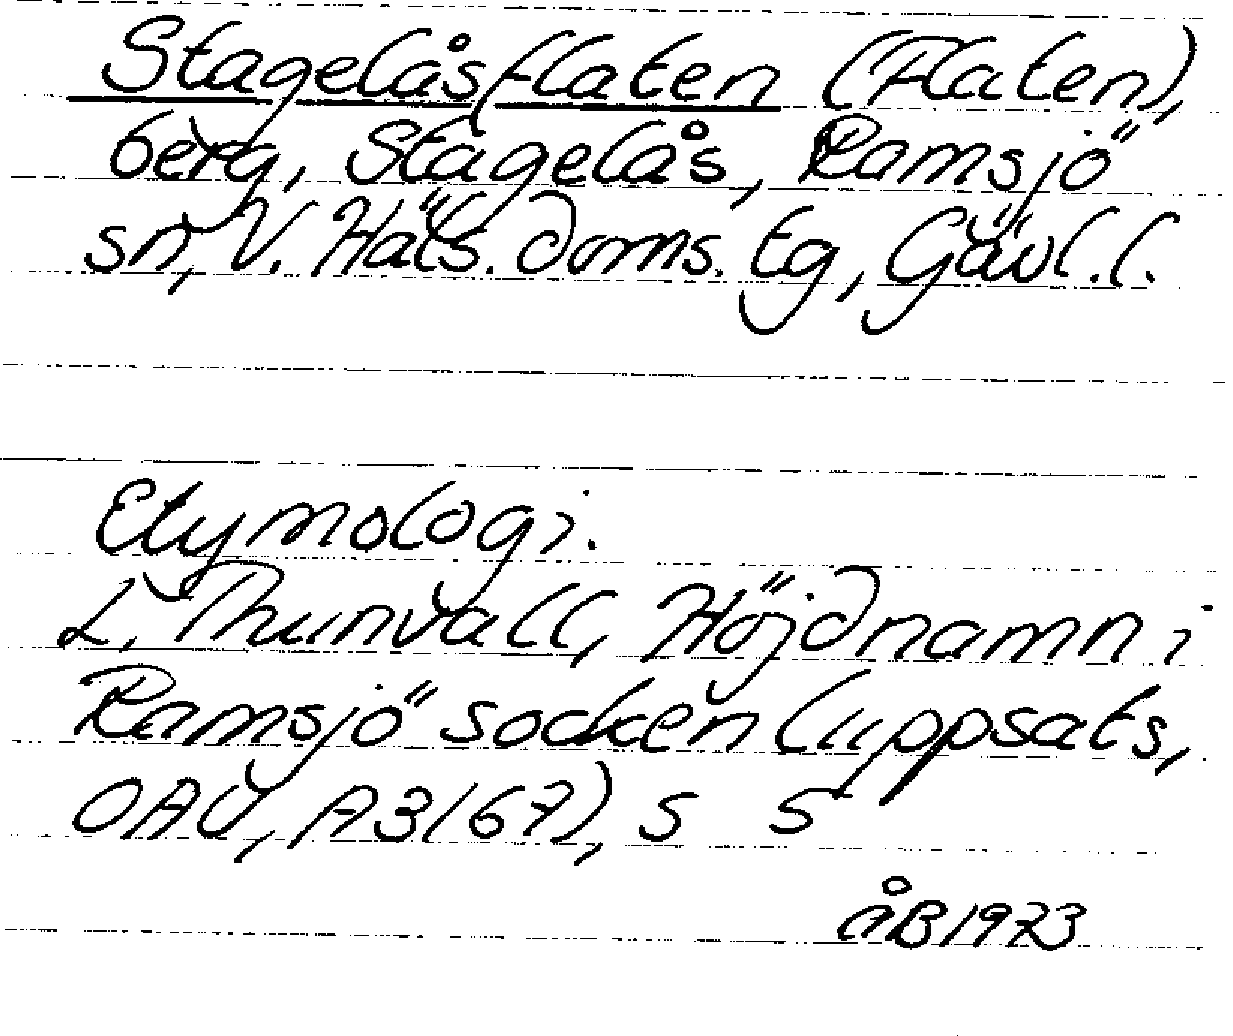 Stagelåsflaten (Flaten),
berg, Stagelås, Ramsjö
sn, V. Häls. doms. tg, Gävl. l.
Etymologi.
L. Thunvall, Höjdnamn i
Ramsjö socken (uppsats,
OAU, A3/67), s 5
åB 1973